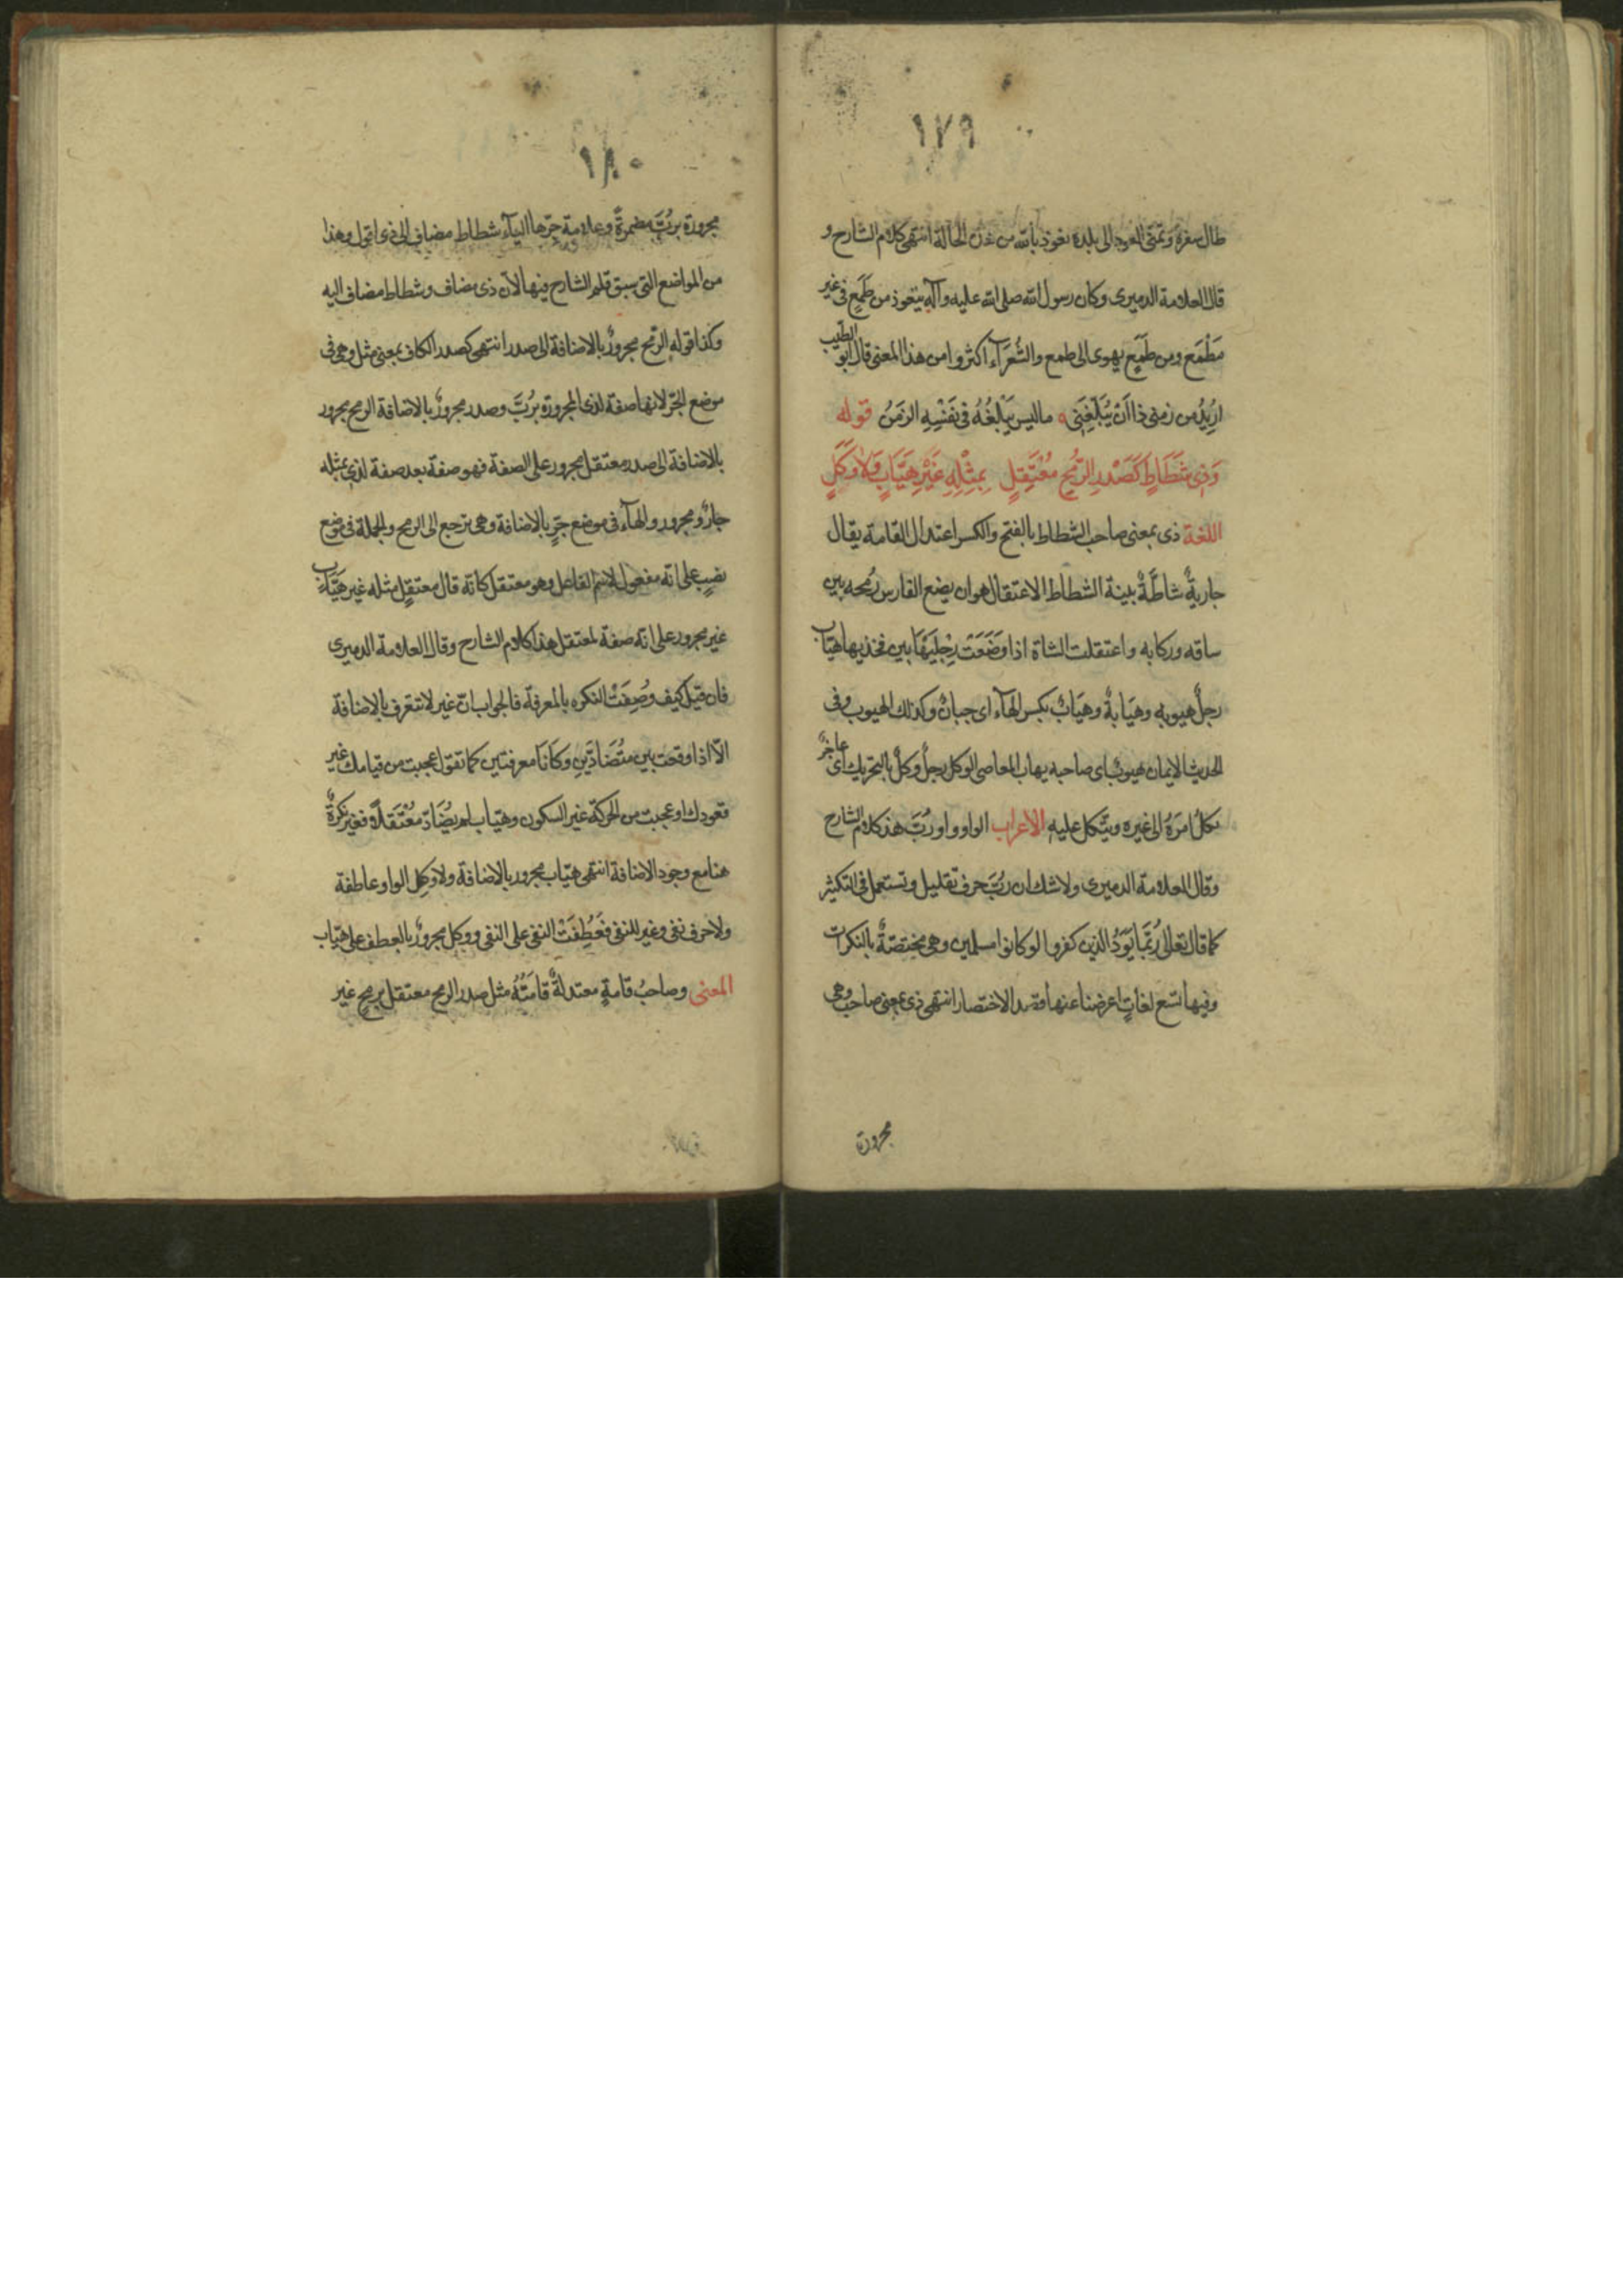 ١٧٩
طال سفره وتمنى العود الى بلده نعوذ بالله من هذه الحالة انتهى كلام الشارح و
قال العلامة الدميرى وكان رسول الله صلى الله عليه وآله يتعوذ من طَمَعٍ فى غير
مَطْمَع ومن طَمَعٍ يهوى الى طمع والشُّعَرَآء اكثروا من هذا المعنى قال ابو الطيب
اُرِيدُ من زمنى ذا اَنْ يُبَلِّغَنِى ه ماليس يَبْلُغُهُ فى نَفْسِهِ الزمَنُ قوله
وَذِى شَطَاطٍ كَصَدْرِ الرُّمْحِ مُعْتَقِلٍ بِمِثْلِهِ غَيْرِ هَيَّابٍ وَلَا وَكَلٍ
اللغة ذى بمعنى صاحب الشطاط بالفتح والكسر اعتدال القامة يقال
جاريةٌ شاطَّةٌ بينة الشطاط الاعتقال هو ان يضع الفارس رُمحه بين
ساقه وركابه واعتقلت الشاة اذا وَضَعَتْ رِجْلَيْهَا بين فخذيها هيّاب
رجلٌ هيوبه وهَيَابةٌ وهيَابٌ بكسر الهآء اى جبانٌ وكذلك الهيوب وفى
الحديث الايمان هيوبٌ اى صاحبه يهاب المعاصى الوكل رجلٌ وَكَلٌ بالتحريك اى عاجزٌ
يكلُ امرَهُ الى غيره ويتّكل عليه الاعراب الواو واو رُبَّ هذ كلام الشارح
وقال العلامة الدميرى ولا شك ان ربَّ حرف تقليل وتستعمل فى التكثير
كما قال تعالى رُبَّمَا يَوَدُّ الذين كفروا لو كانوا مسلمين وهى مختصّةٌ بالنكرات
وفيها تسع لغاتٍ اعرضنا عنها قصد الاختصار انتهى ذى بمعنى صاحب وهى
مجرورة
١٨٠
مجرورة برُبَّ مضمرةً وعلامة جرّها اليآء شطاط مضاف الى ذى اقول وهذا
من المواضع التى سبق قلم الشارح فيها لانّ ذى مضاف وشطاط مضاف اليه
وكذا قوله الرمح مجرورٌ بالاضافة الى صدر انتهى كصدر الكاف بمعنى مثل وهى فى
موضع الجرّ لانها صفة لذى المجرورة برُبَّ وصدر مجرورٌ بالاضافة الرمح مجرور
بالاضافة الى صدر معتقل مجرور على الصفة فهو صفة بعد صفة لذى بمثله
جارٌ ومجرور والهآء فى موضع جرٍّ بالاضافة وهى ترجع الى الرمح والجملة فى موضع
نصبٍ على انّه مفعول لاسم الفاعل وهو معتقل كانّه قال معتقلٍ مثله غير هَيَّابٍ
غير مجرور على انّه صفة لمعتقل هذا كلام الشارح وقال العلامة الدميرى
فان قيل كيف وُصِفَتْ النكره بالمعرفة فالجواب انّ غير لا تتعرف بالاضافة
الّا اذا وقعت بين متُضَادَّينِ وكَانَا معرفتين كما تقول عجبت من قيامك غير
قعودك او عجبت من الحركة غير السكون وهيّاب لم يُضَادّ مُعْتَقَلًا فغير نكرةٌ
هنا مع وجود الاضافة انتهى هيّاب مجرور بالاضافة ولا وكل الواو عاطفة
ولا حرف نفى وغير للنفى فَعُطِفَتْ النفى على النفى ووكل مجرورٌ بالعطف على هيّاب
المعنى وصاحبُ قامةٍ معتدلةٌ قامَتُهُ مثل صدر الرمح معتقل برمحٍ غير